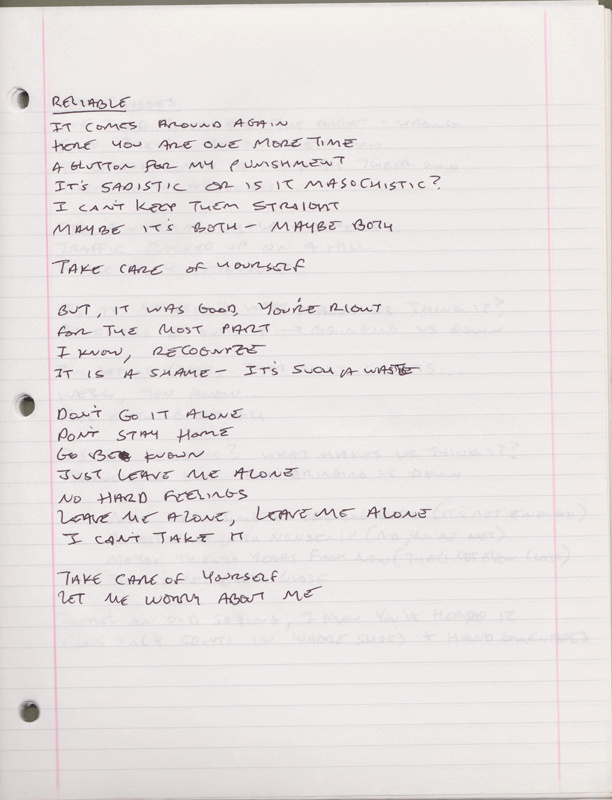 RELIABLE
IT COMES AROUND AGAIN
HERE YOU ARE ONE MORE TIME
A GLUTTON FOR MY PUNISHMENT
IT'S SADISTIC OR IS IT MASOCHISTIC?
I CAN'T KEEP THEM STRAIGHT
MAYBE IT'S BOTH - MAYBE BOTH
TAKE CARE OF YOURSELF
BUT, IT WAS GOOD, YOU'RE RIGHT
FOR THE MOST PART
I KNOW, RECOGNIZE
IT IS A SHAME - IT'S SUCH A WASTE
DON'T GO IT ALONE
DON'T STAY HOME
GO BE KNOWN
JUST LEAVE ME ALONE
NO HARD FEELINGS
LEAVE ME ALONE, LEAVE ME ALONE
I CAN'T TAKE IT
TAKE CARE OF YOURSELF
LET ME WORRY ABOUT ME